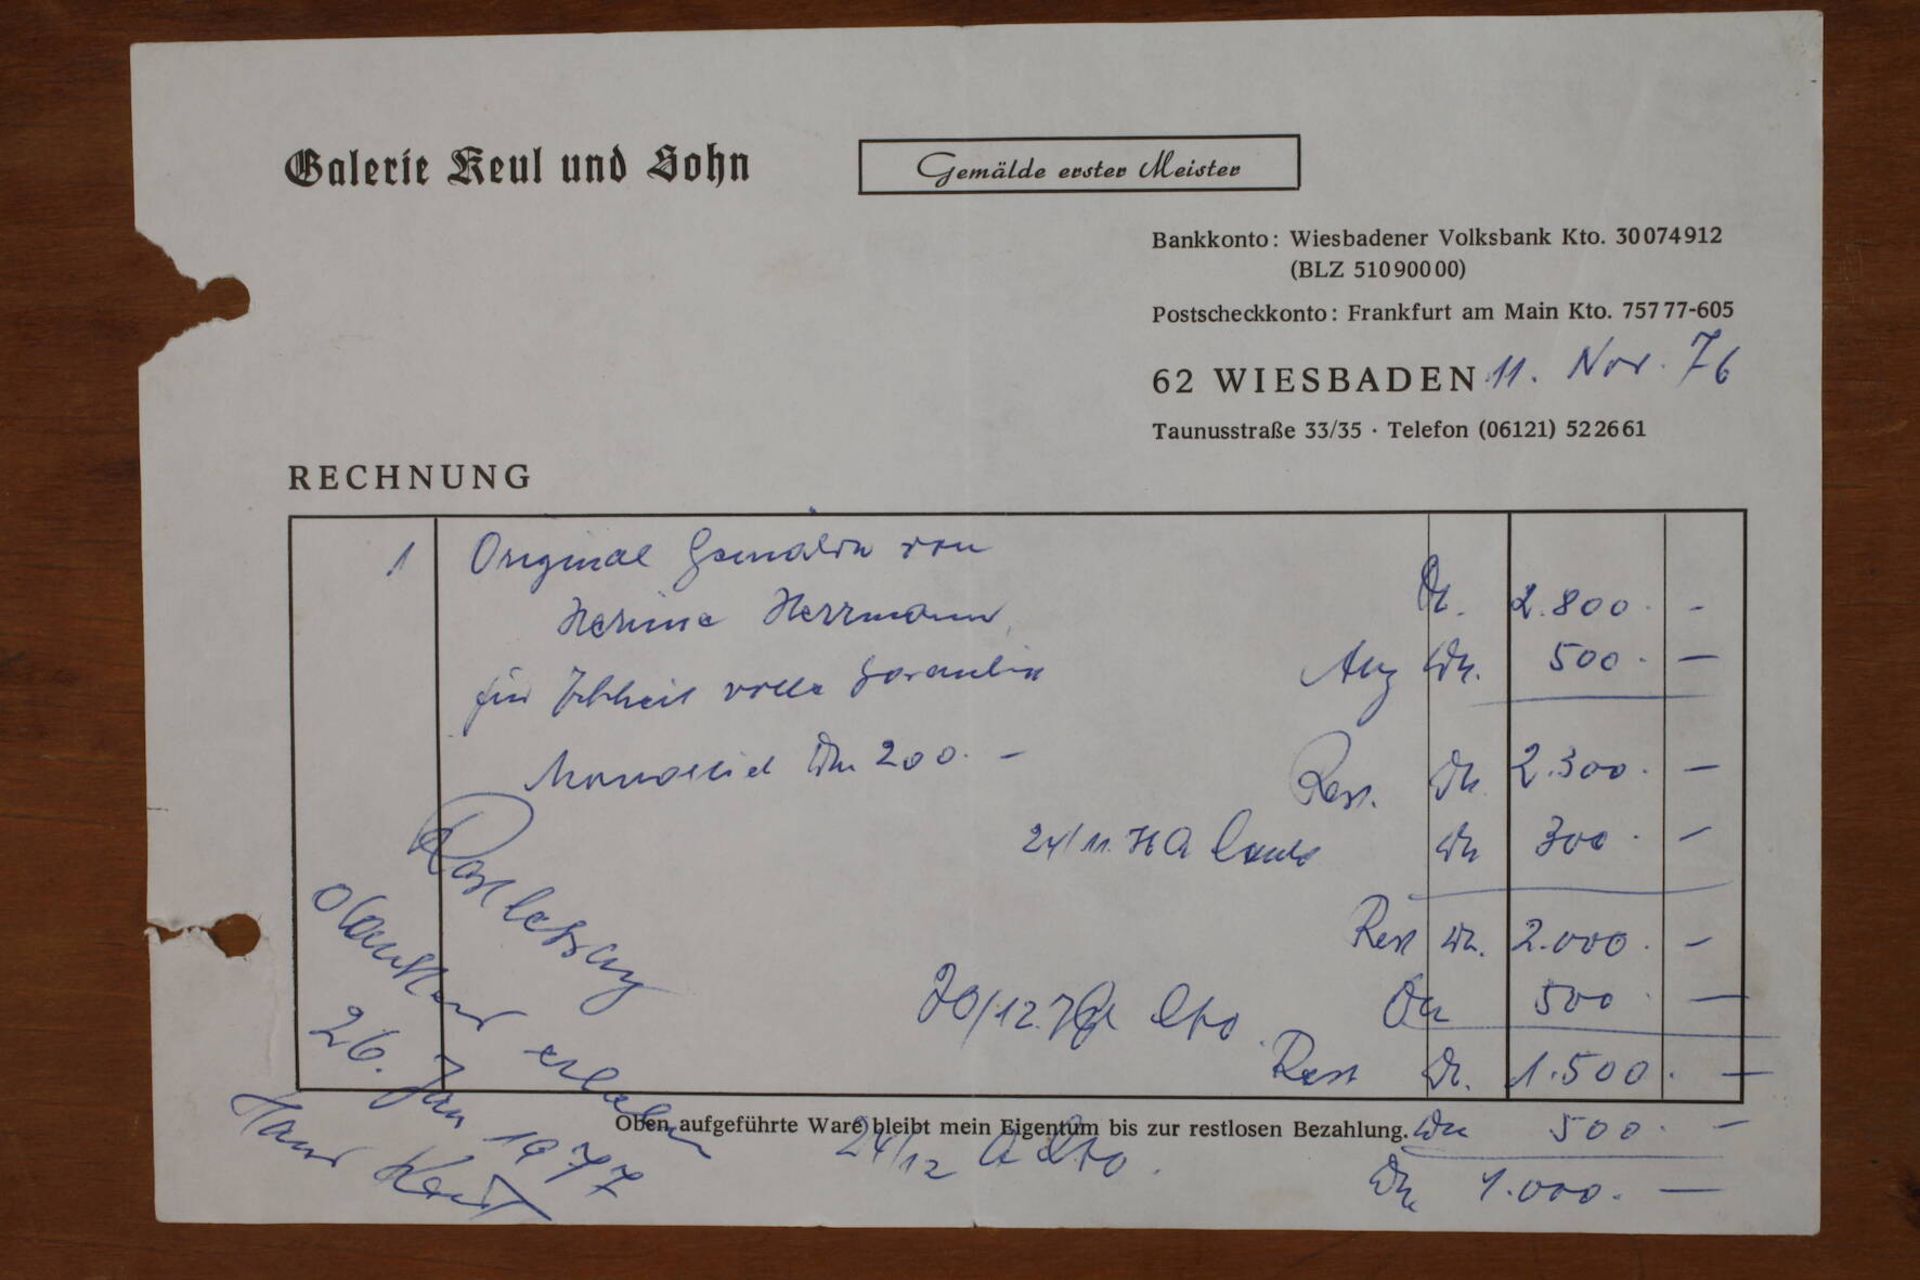 Galerie Keul und Sohn
Gemälde erster Meister
Bankkonto: Wiesbadener Volksbank Kto. 30074912
(BLZ 51090000)
Postscheckkonto: Frankfurt am Main Kto. 75777-605
62 WIESBADEN 11. Nov. 76
Taunusstraße 33/35 · Telefon (06121) 522661
RECHNUNG
1 Original Gemälde von
Herrmann Dm. 2.800.-
für Echtheit volle Garantie Anz Dm. 500.-
Monatlich Dm 200.-
Rest. Dm 2.300.-
24/11. 76 a Dm 300.-
Rest Dm. 2.000.-
/12. 76 a cto Dm 500.-
Rest Dm. 1.500.-
Oben aufgeführte Ware bleibt mein Eigentum bis zur restlosen Bezahlung. Dm 500.-
24/12 a cto.
Dm 1.000.-
Restbetrag
dankend erhalten
26. Jan 1977
Hans Keul